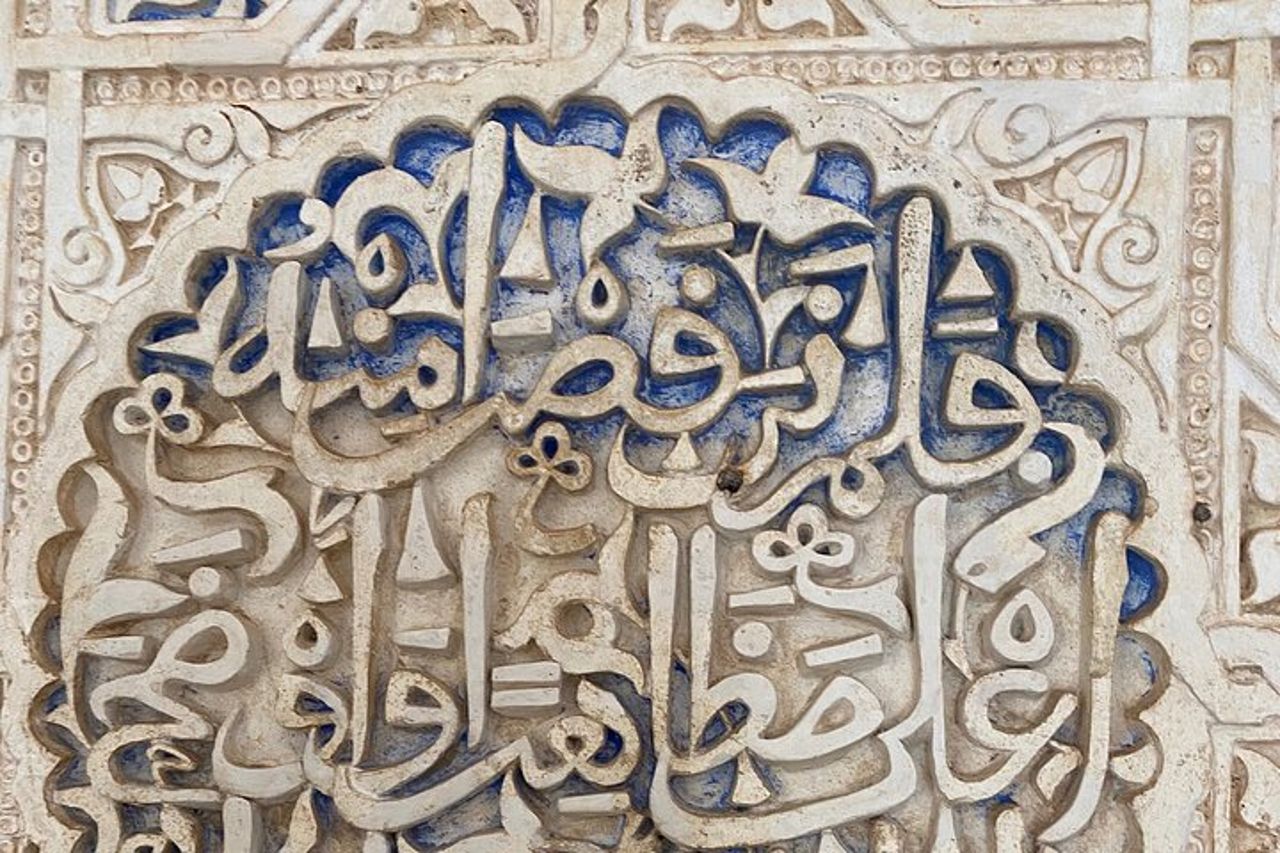 فلم نر قصرا منه
أعلى مظاهرا وأوضح